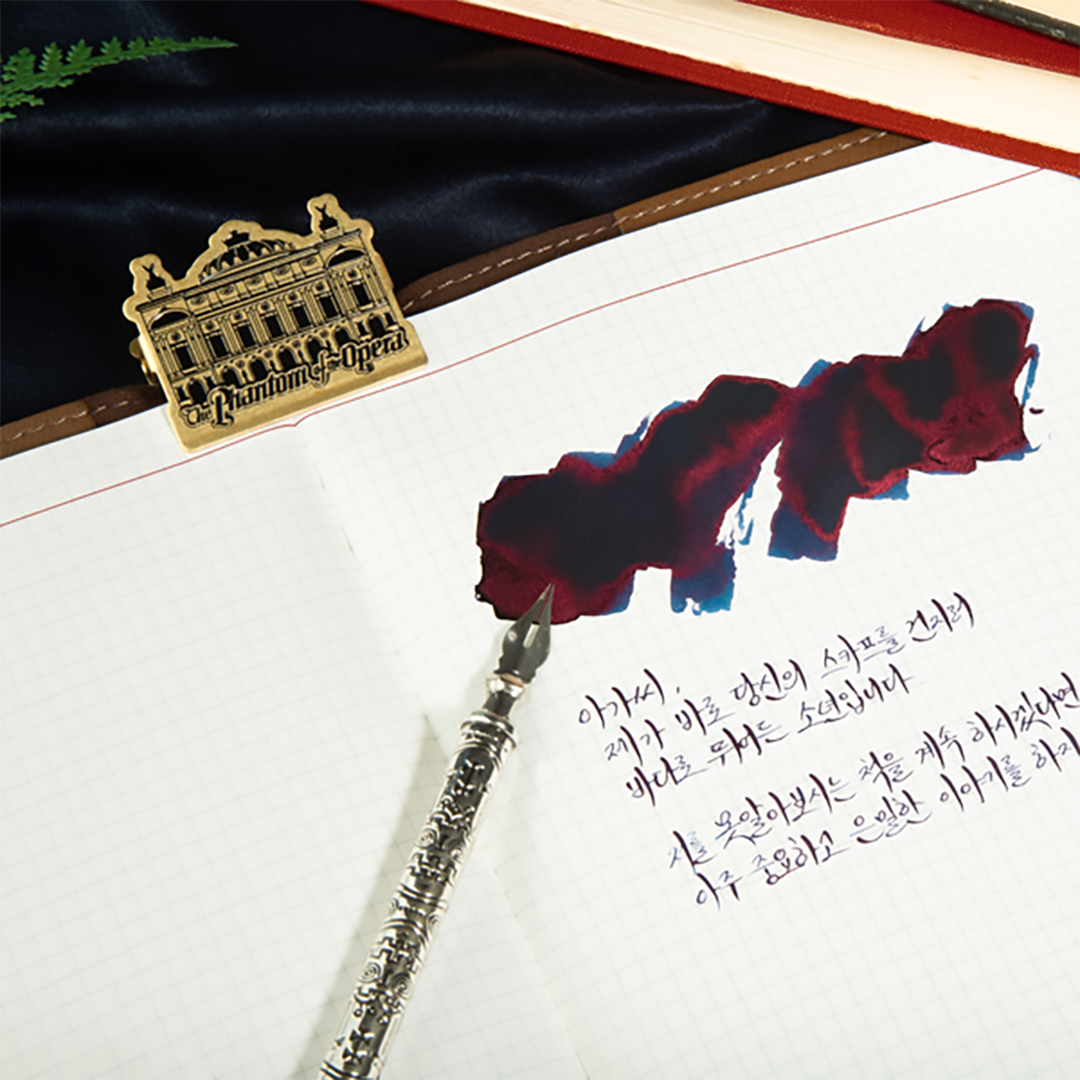 The Phantom of the Opera
아가씨,
제가 바로 당신의 스카프를 건지러
바다로 뛰어든 소년입니다
저를 못알아보시는 척을 계속 하시겠다면
아주 중요하고 은밀한 이야기를 하지